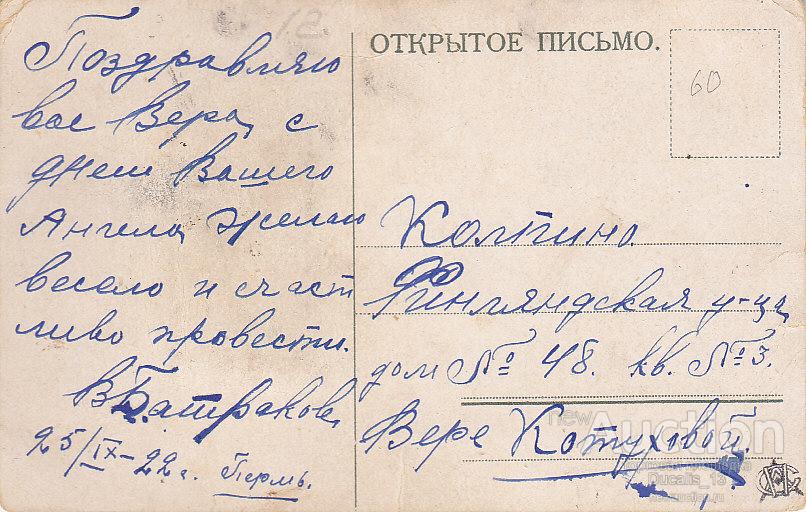 12.
Поздравляю
вас Вера, с
днем Вашего
Ангела, желаю
весело и счаст
ливо провести.
В Батракова
25/IX-22 г. Пермь.
ОТКРЫТОЕ ПИСЬМО.
60
Колпино
Финляндская у-ца
дом № 48. кв. № 3.
Вере Котуховой.
new
Auction
Ducalis_13